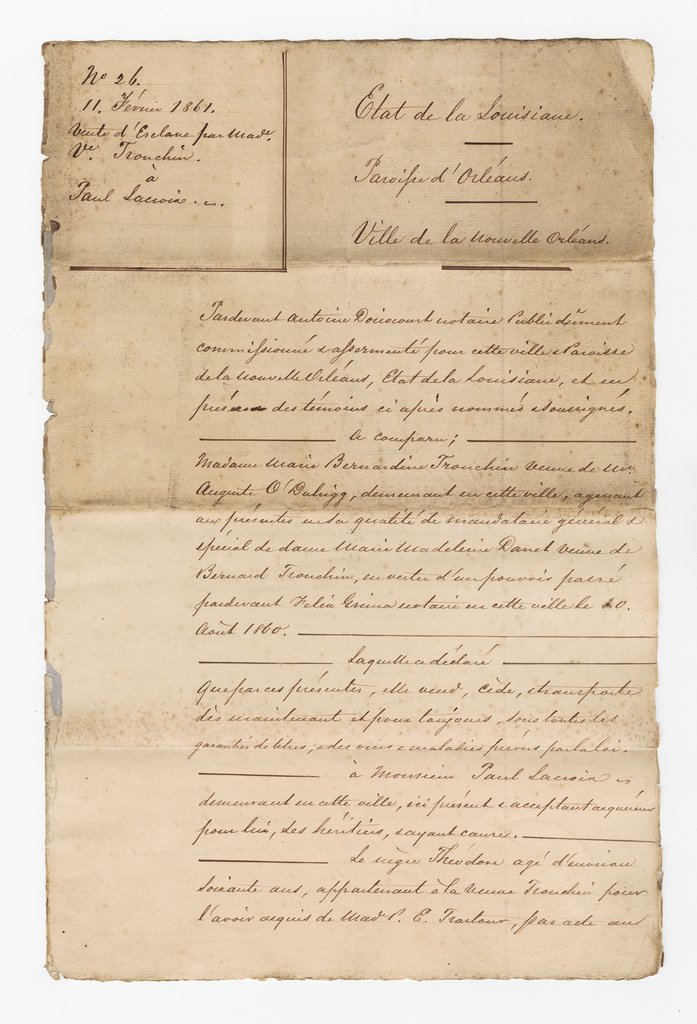 No 26.
11. Février 1861.
Vente d'Esclave par Made.
Ve. Tronchin.
à
Paul Lacroix.
Etat de la Louisiane.
Paroisse d'Orléans.
Ville de la Nouvelle Orléans.
Pardevant Antoine Doriocourt notaire Public dûment
commissionné & assermenté pour cette ville & Paroisse
de la Nouvelle Orléans, Etat de la Louisiane, et en
présence des témoins ci après nommés & soussignés.
A comparu;
Madame Marie Bernardine Tronchin veuve de Mr.
Auguste O'Duhigg, demeurant en cette ville, agissant
aux présentes en sa qualité de mandataire général &
spécial de dame Marie Madeleine Danet veuve de
Bernard Tronchin, en vertu d'un pouvoir passé
pardevant Felix Grima notaire en cette ville le 20.
Août 1860.
Laquelle a déclaré
Que par ces présentes, elle vend, cède, & transporte
dès maintenant et pour toujours, sous toutes les
garanties de titres, & des vices & maladies prévus par la loi.
à Monsieur Paul Lacroix
demeurant en cette ville, ici présent & acceptant acquéreur
pour lui, ses héritiers, & ayant cause.
Le nègre Théodore agé d'environ
soixante ans, appartenant à la Veuve Tronchin pour
l'avoir acquis de Mad. P. E. Trastour, par acte au